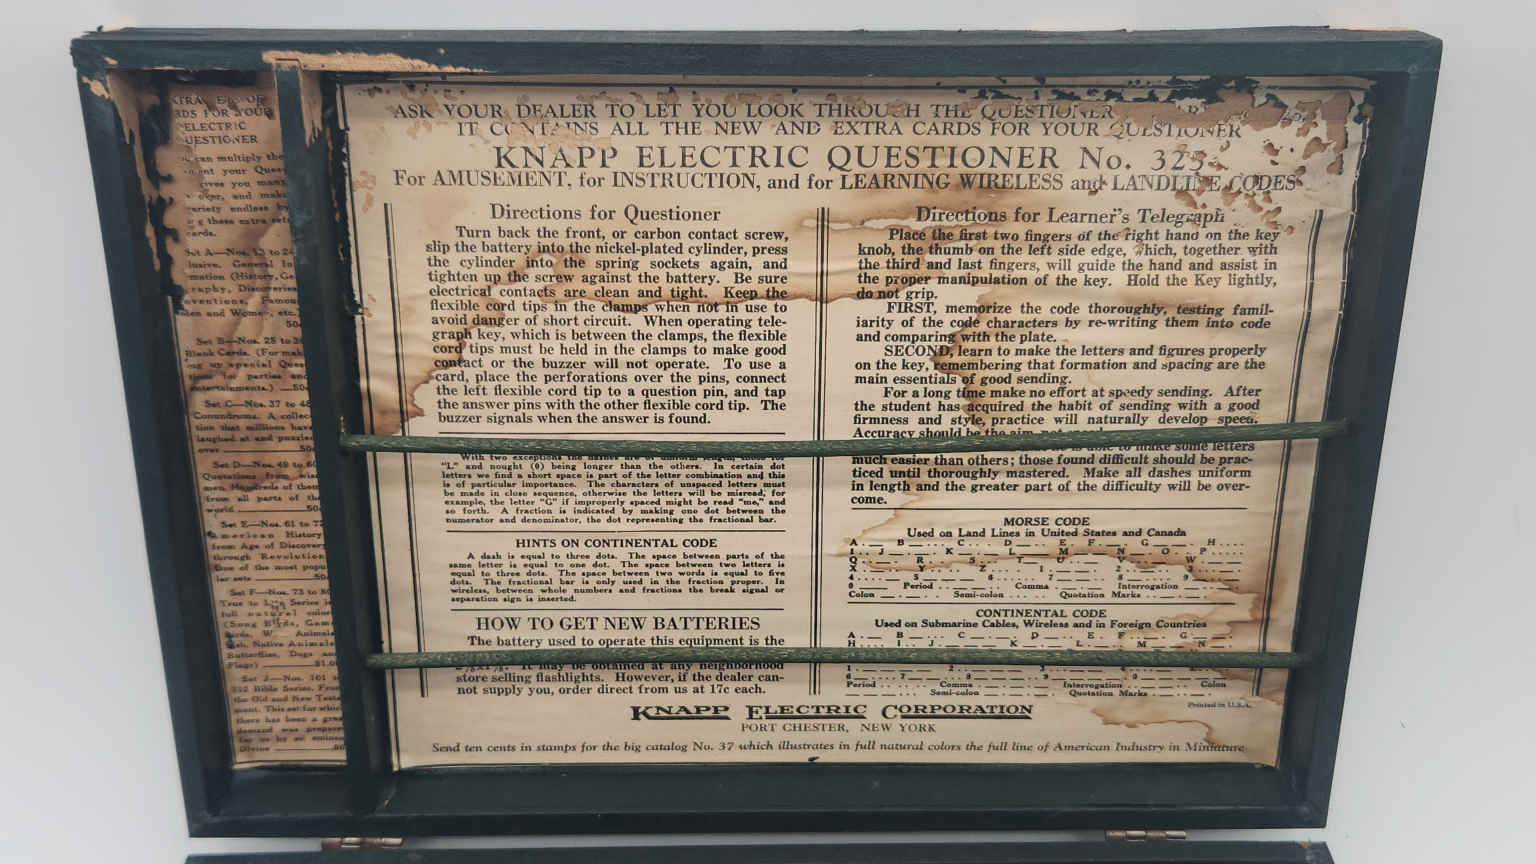 XTRA
RDS FOR YOUR
ELECTRIC
QUESTIONER
can multiply the
your
gives you many
over, and make
variety endless by
these extra sets
cards.
Set A—Nos. 13 to 24
lusive. General In
mation (History, Ge
raphy, Discoveries
nventions, Famous
Men and Women, etc.)
50
Set B—Nos. 25 to 36
Blank Cards. (For mak
ng up special Ques
tions for parties and
entertainments.) 50
Set C—Nos. 37 to 48
Conundrums. A collec
tion that millions have
laughed at and puzzled
over 50
Set D—Nos. 49 to 60
Quotations from wise
men. Hundreds of them
from all parts of the
world 50
Set E—Nos. 61 to 72
American History
from Age of Discovery
through Revolution
One of the most popu
lar sets 50
Set F—Nos. 73 to 80
True to Life Series in
full natural colors
(Song Birds, Game
Birds, Animals
Fish, Native Animals
Butterflies, Dogs and
Flags) $1.0
Set J—Nos. 101 to
112 Bible Series. From
the Old and New Testa
ment. This set for which
there has been a great
demand was prepared
for us by an eminent
Divine
ASK YOUR DEALER TO LET YOU LOOK THROUGH THE QUESTIONER
IT CONTAINS ALL THE NEW AND EXTRA CARDS FOR YOUR QUESTIONER
KNAPP ELECTRIC QUESTIONER No. 325
For AMUSEMENT, for INSTRUCTION, and for LEARNING WIRELESS and LANDLINE CODES
Directions for Questioner
Turn back the front, or carbon contact screw,
slip the battery into the nickel-plated cylinder, press
the cylinder into the spring sockets again, and
tighten up the screw against the battery. Be sure
electrical contacts are clean and tight. Keep the
flexible cord tips in the clamps when not in use to
avoid danger of short circuit. When operating tele-
graph key, which is between the clamps, the flexible
cord tips must be held in the clamps to make good
contact or the buzzer will not operate. To use a
card, place the perforations over the pins, connect
the left flexible cord tip to a question pin, and tap
the answer pins with the other flexible cord tip. The
buzzer signals when the answer is found.
With two exceptions the dashes are of uniform length, those for
"L" and nought (0) being longer than the others. In certain dot
letters we find a short space is part of the letter combination and this
is of particular importance. The characters of unspaced letters must
be made in close sequence, otherwise the letters will be misread, for
example, the letter "G" if improperly spaced might be read "me," and
so forth. A fraction is indicated by making one dot between the
numerator and denominator, the dot representing the fractional bar.
HINTS ON CONTINENTAL CODE
A dash is equal to three dots. The space between parts of the
same letter is equal to one dot. The space between two letters is
equal to three dots. The space between two words is equal to five
dots. The fractional bar is only used in the fraction proper. In
wireless, between whole numbers and fractions the break signal or
separation sign is inserted.
HOW TO GET NEW BATTERIES
The battery used to operate this equipment is the
It may be obtained at any neighborhood
store selling flashlights. However, if the dealer can-
not supply you, order direct from us at 17c each.
Directions for Learner's Telegraph
Place the first two fingers of the right hand on the key
knob, the thumb on the left side edge, which, together with
the third and last fingers, will guide the hand and assist in
the proper manipulation of the key. Hold the Key lightly,
do not grip.
FIRST, memorize the code thoroughly, testing famil-
iarity of the code characters by re-writing them into code
and comparing with the plate.
SECOND, learn to make the letters and figures properly
on the key, remembering that formation and spacing are the
main essentials of good sending.
For a long time make no effort at speedy sending. After
the student has acquired the habit of sending with a good
firmness and style, practice will naturally develop speed.
Accuracy should be the aim
to make some letters
much easier than others; those found difficult should be prac-
ticed until thoroughly mastered. Make all dashes uniform
in length and the greater part of the difficulty will be over-
come.
MORSE CODE
Used on Land Lines in United States and Canada
A B C D E F G H
I J K L M N O P
Q R S T U V W
X Y Z 1 2 3
4 5 6 7 8 9
0 Period Comma Interrogation
Colon Semi-colon Quotation Marks
CONTINENTAL CODE
Used on Submarine Cables, Wireless and in Foreign Countries
A B C D E F G
H I J K L M N
1 2 3 4 5
6 7 8 9 0
Period Comma Interrogation Colon
Semi-colon Quotation Marks
Printed in U.S.A.
KNAPP ELECTRIC CORPORATION
PORT CHESTER, NEW YORK
Send ten cents in stamps for the big catalog No. 37 which illustrates in full natural colors the full line of American Industry in Miniature